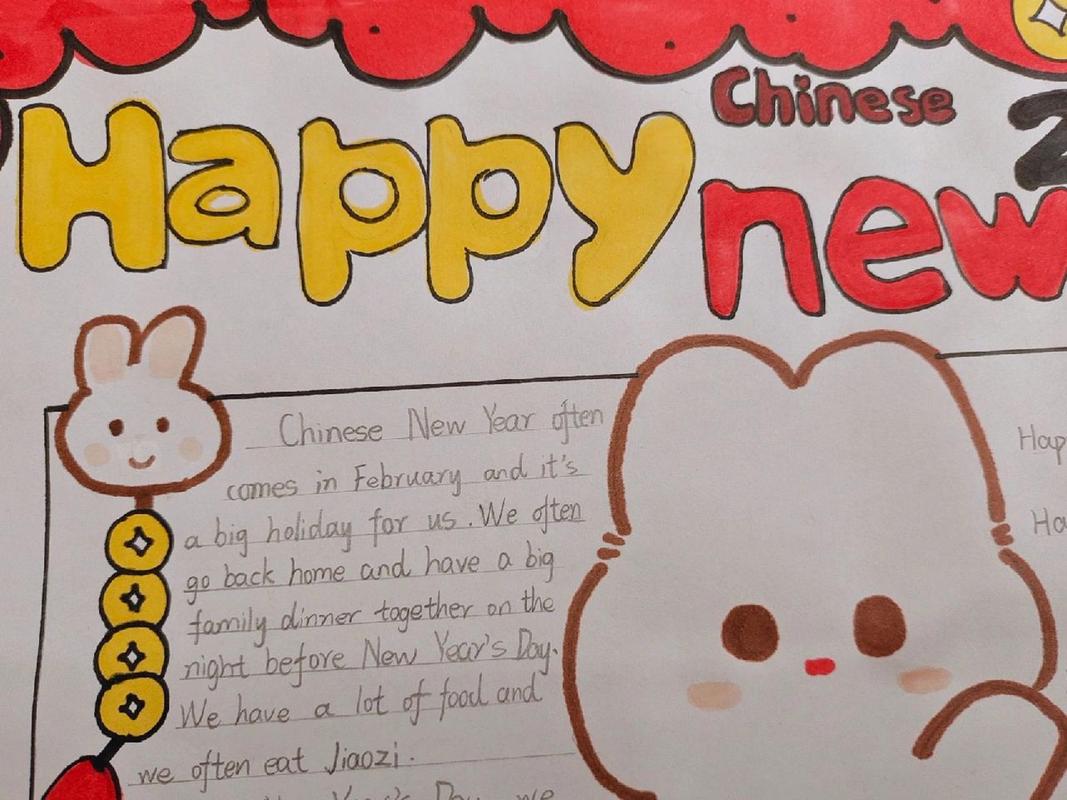 Happy
Chinese
new
Chinese New Year often
comes in February and it's
a big holiday for us. We often
go back home and have a big
family dinner together on the
night before New Year's Day.
We have a lot of food and
we often eat Jiaozi.
Year's Day we